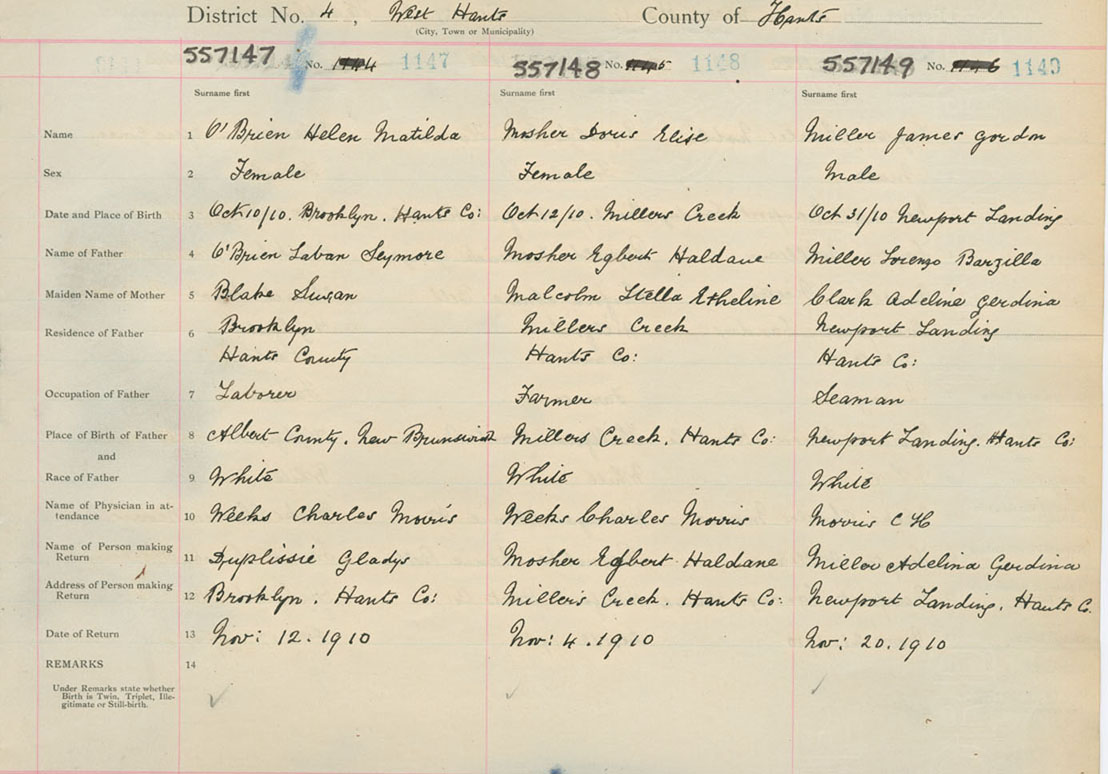 District No. 4, West Hants County of Hants
(City, Town or Municipality)
557147 No. 1147 557148 No. 1148 557149 No. 1149
Surname first Surname first Surname first
Name 1 O'Brien Helen Matilda Mosher Doris Elise Miller James Gordon
Sex 2 Female Female Male
Date and Place of Birth 3 Oct 10/10. Brooklyn. Hants Co: Oct 12/10. Millers Creek Oct 31/10 Newport Landing
Name of Father 4 O'Brien Laban Seymore Mosher Egbert Haldane Miller Lorenzo Barzilla
Maiden Name of Mother 5 Blake Susan Malcolm Stella Etheline Clark Adeline Gerdina
Residence of Father 6 Brooklyn Millers Creek Newport Landing
Hants County Hants Co: Hants Co:
Occupation of Father 7 Laborer Farmer Seaman
Place of Birth of Father 8 Albert County. New Brunswick Millers Creek. Hants Co: Newport Landing. Hants Co:
and
Race of Father 9 White White White
Name of Physician in at-
tendance 10 Weeks Charles Morris Weeks Charles Morris Morris C H
Name of Person making
Return 11 Duplissie Gladys Mosher Egbert Haldane Miller Adelina Gerdina
Address of Person making
Return 12 Brooklyn. Hants Co: Millers Creek. Hants Co: Newport Landing. Hants C.
Date of Return 13 Nov: 12. 1910 Nov: 4. 1910 Nov: 20. 1910
REMARKS 14
Under Remarks state whether
Birth is Twin, Triplet, Ille-
gitimate or Still-birth.